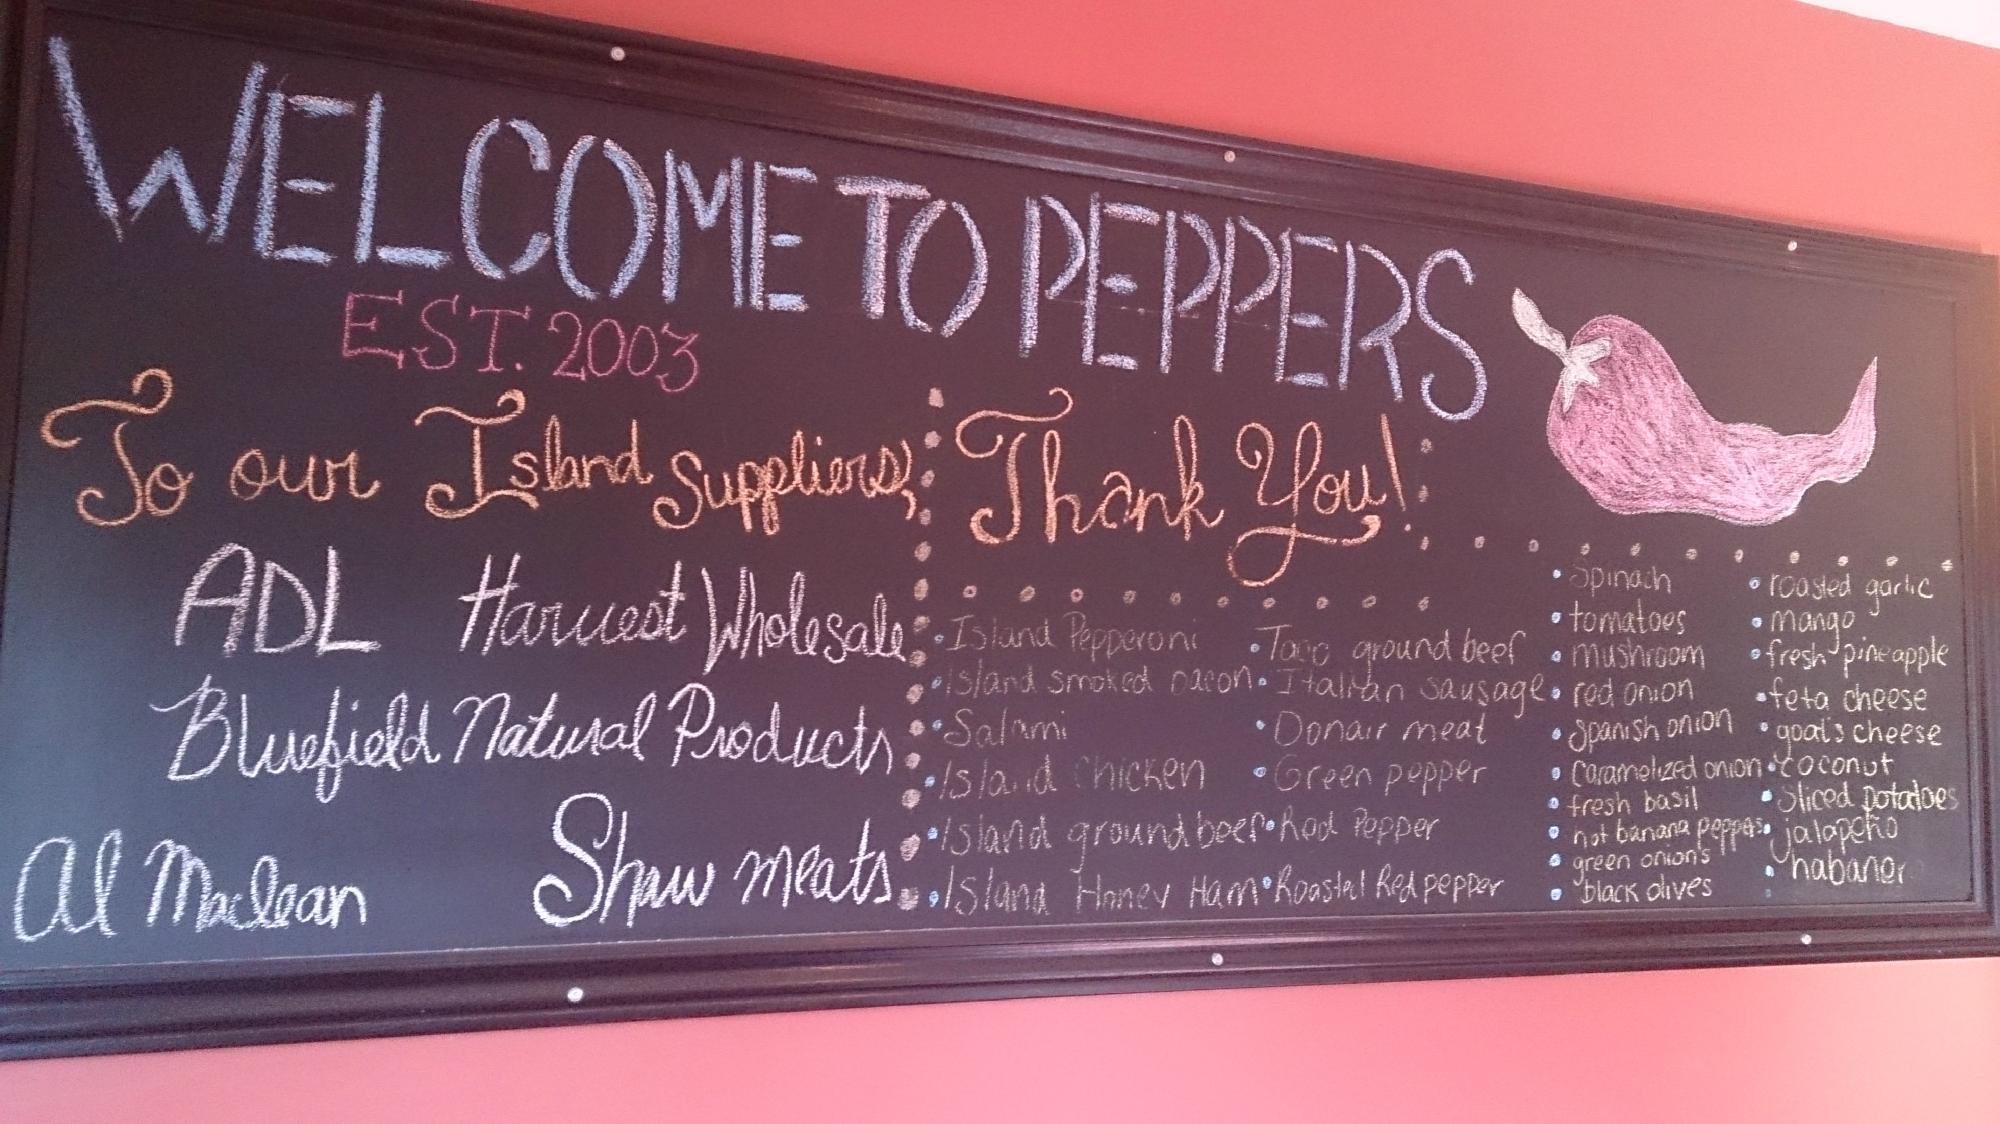 WELCOME TO PEPPERS
EST. 2003
To our Island Suppliers,
Thank You!
ADL Harvest Wholesale
Bluefield Natural Products
Al Maclean Shaw meats
Island Pepperoni
Island smoked bacon
Salami
Island Chicken
Island ground beef
Island Honey Ham
Taco ground beef
Italian sausage
Donair meat
Green pepper
Red Pepper
Roasted Red pepper
Spinach
tomatoes
mushroom
red onion
Spanish onion
caramelized onion
fresh basil
hot banana peppers
green onions
black olives
roasted garlic
mango
fresh pineapple
feta cheese
goat's cheese
coconut
Sliced potatoes
jalapeño
habaner